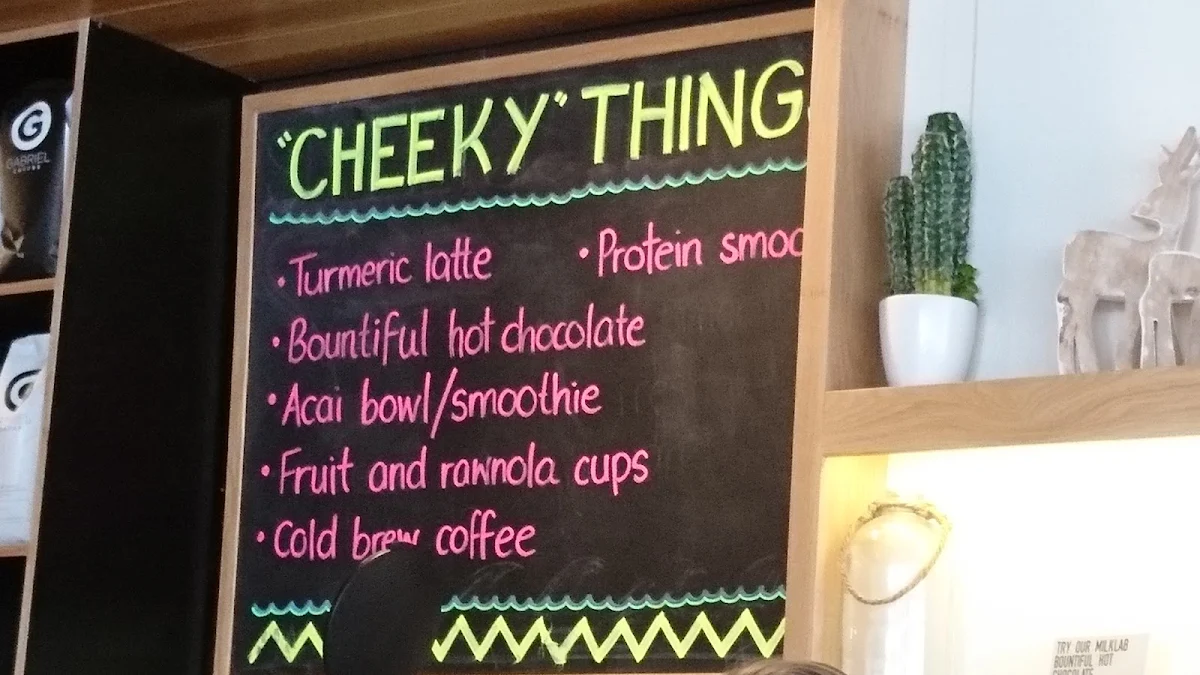 G
GABRIEL
COFFEE
"CHEEKY" THING
• Turmeric latte
• Protein smoo
• Bountiful hot chocolate
• Acai bowl/smoothie
• Fruit and rawnola cups
• Cold brew coffee
TRY OUR MILKLAB
BOUNTIFUL HOT
CHOCOLATE